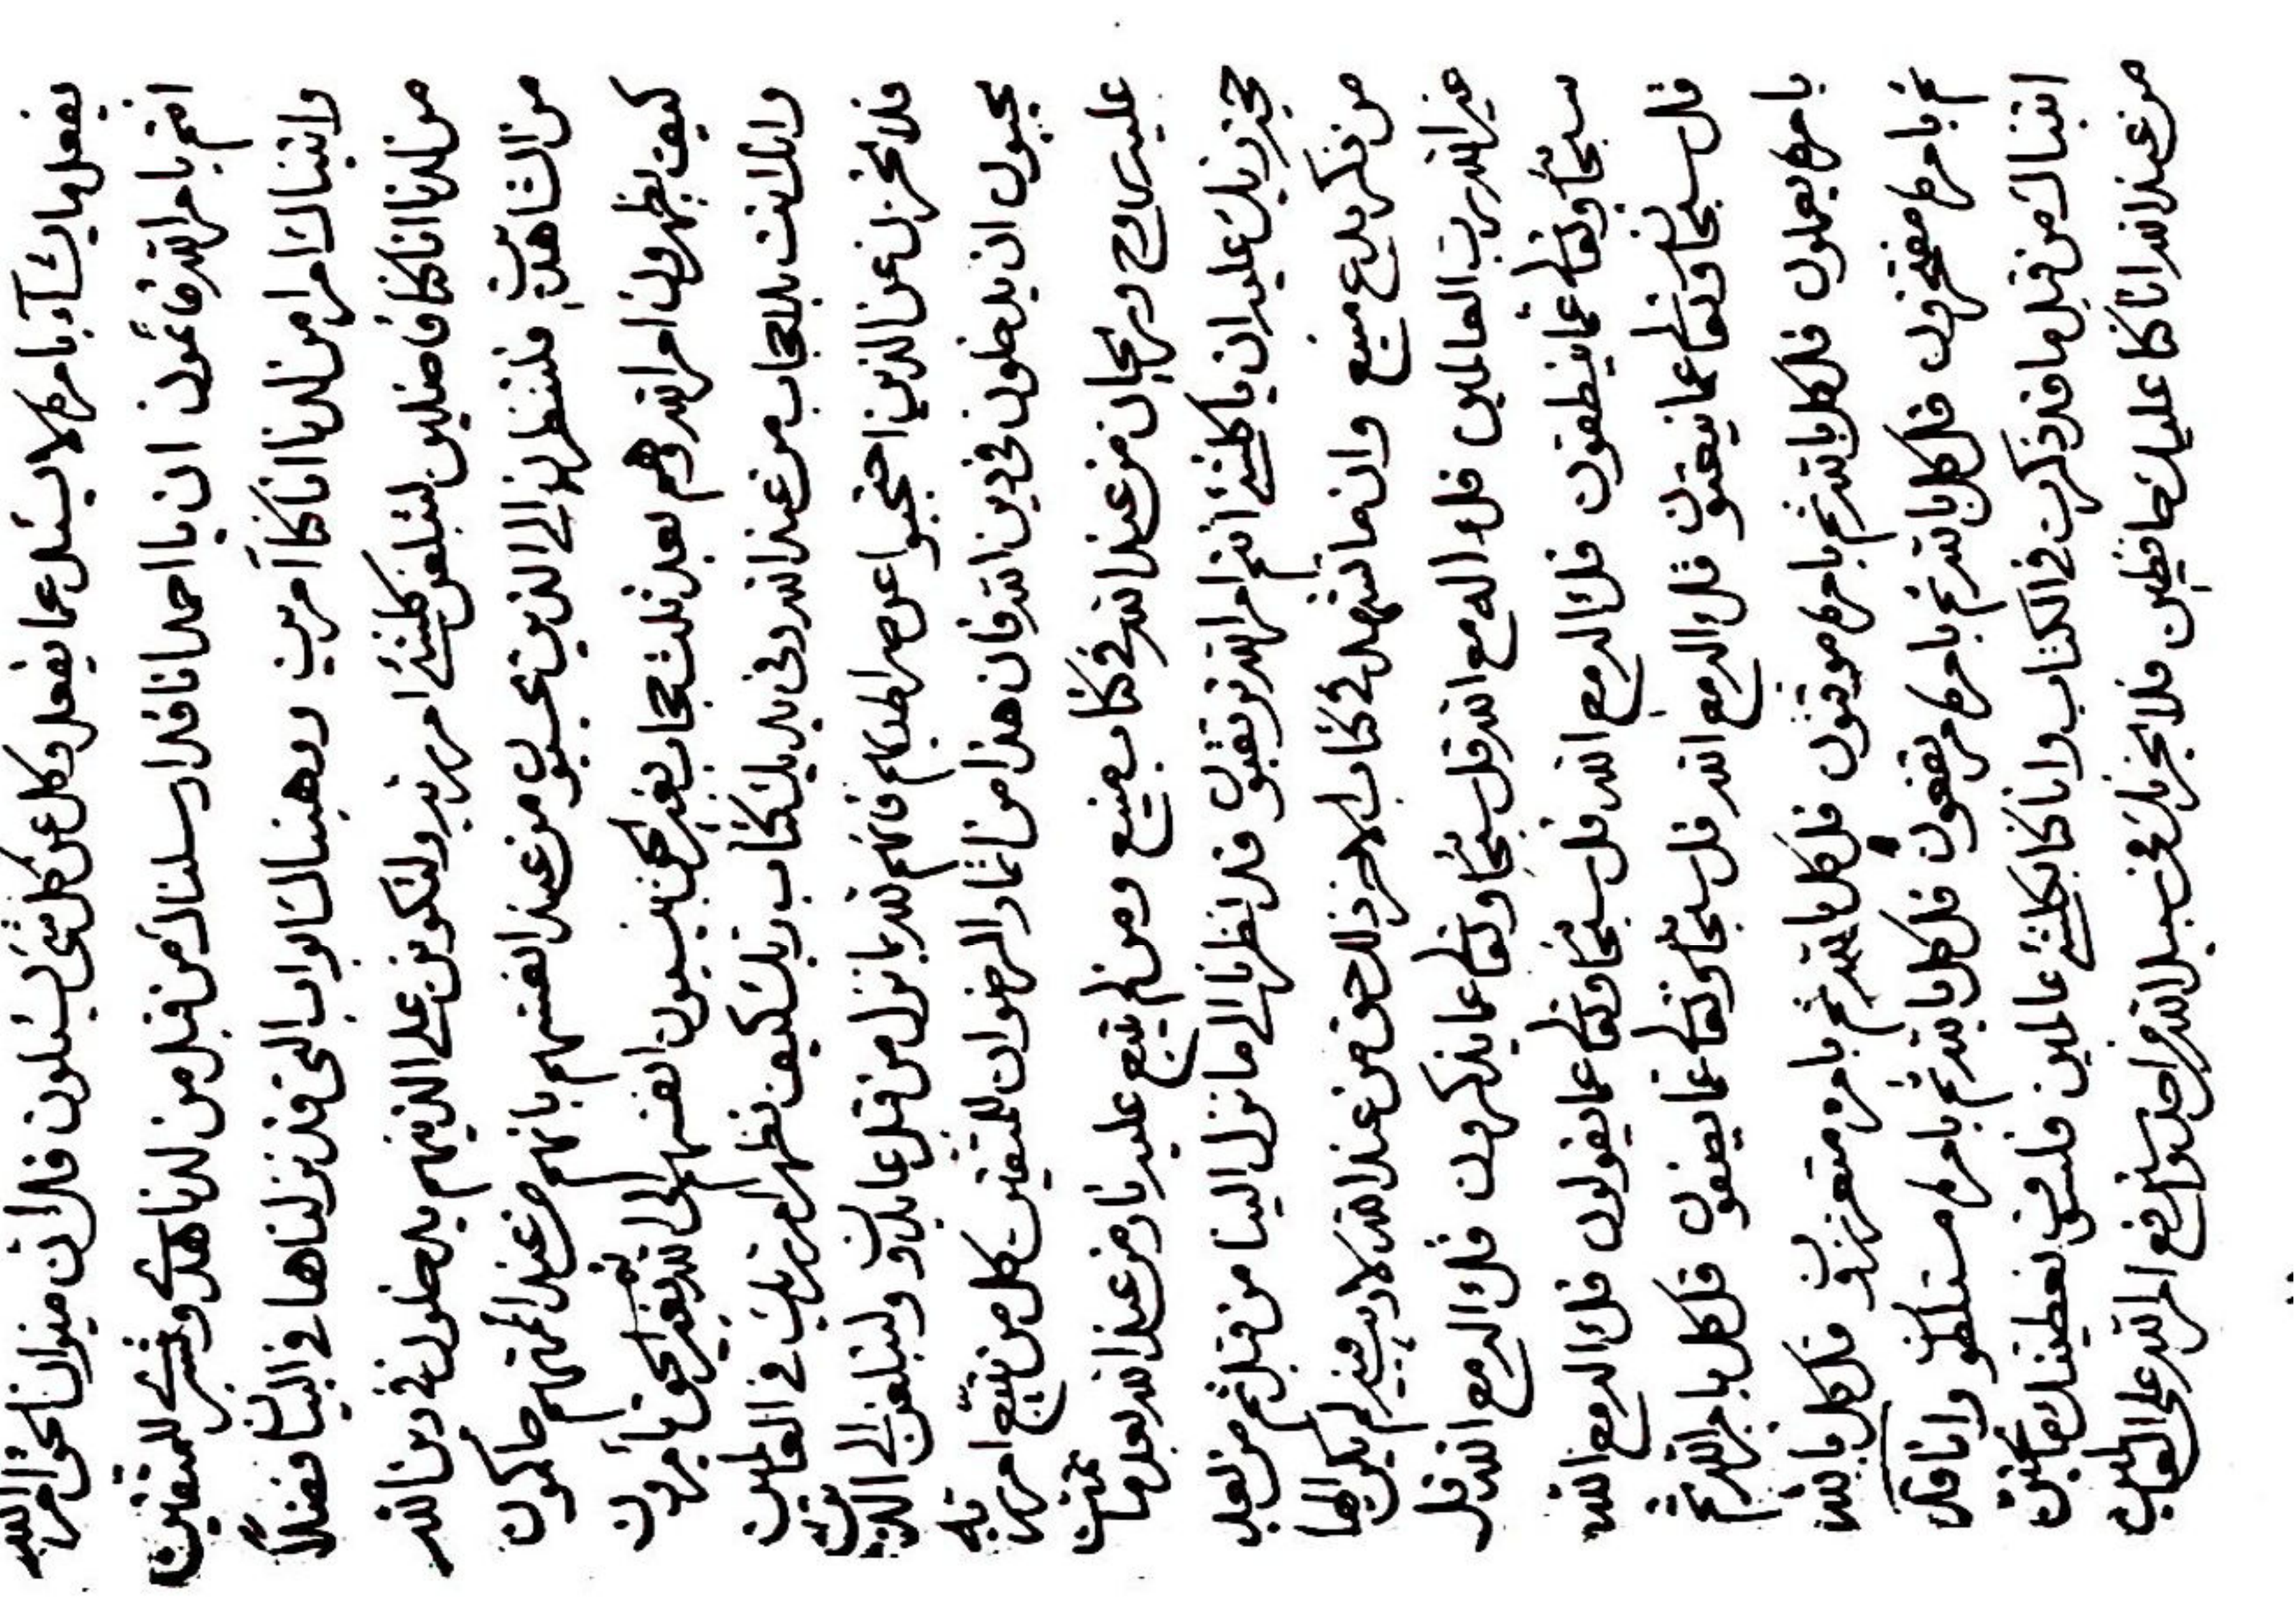 يفعل ما يشآء بامره لا يسئل عما يفعل وكل عن كل شئ يسئلون قل ان مثوان نحو امر الله
انتم بامر الله قائمون ان يا احد انا قد ارسلناك من قبل من لدنا هدى وبشرى للمتقين
واتيناك امرا من لدنا انا كنا آمرين ووهبناك ابواب التي قد نزلناها في البيان فضلاً
من لدنا انا كنا فاضلين لتبلغن كلشئ امر ربه ولتكونن على الذينهم يدخلون في دين الله
من الشاهدين فلتنظرن الى الذين يحسبون من عند انفسهم بانهم من عند ائمتهم حاكمون
كيف يظهرون امر الله وهم بعد ثلث حجاب بغير الحق ينسبون انفسهم الى الله ثم بغير الحق يأمرون
وانك انت بلا حجاب من عند الله وفي يديك كتاب ربك كيف تظهر امر ربك في العالمين
فلا تحزن عن الذين احتجبوا عن صراطهم فانهم لله بما نزل من قبل عابدون ولتبلغن الى الذين
يحبون ان يدخلون في دين الله فان هذا من اثمار الرضوان للمتقين كل من يتبع امر ربه
عليه روح وريحان من عند الله في كتاب منيع ومن لم يتبع عليه نار من عند الله بعد ما تمت
حجة ربك عليه ان يا كلشئ انتم امر الله تراقبون قد نظرنا الى ما نزل الينا من قبل ثم من بعد
من ذكر بديع منيع وان ما تشهد في كتاب الاخر ذلك حق من عند الله لا ريب فيه لم يكن الها
غير الله رب العالمين قل ءاله مع الله قل سبحانه وتعالى عما يذكرون قل ءاله مع الله قل
سبحانه وتعالى عما ينطقون قل ءاله مع الله قل سبحانه وتعالى عما يقولون قل ءاله مع الله
قل سبحانه وتعالى عما ينعتون قل ءاله مع الله قل سبحانه وتعالى عما يصفون قل كل بامر الله ثم
بامره يعملون قل كل بالله ثم بامره موقنون قل كل بالله ثم بامره متعززون قل كل بالله
ثم بامره مفتخرون قل كل بالله ثم بامره مرتفعون قل كل بالله ثم بامره مستلطون وانا قد
اتيناك من قبل ما قد ذكرت في الكتاب وانا كنا بكلشئ عالمين فلسوف نعطينك
من عند الله انا كنا عليك حافظين فلا تحزنك في سبيل الله من احد وارفع امر الله على العالمين